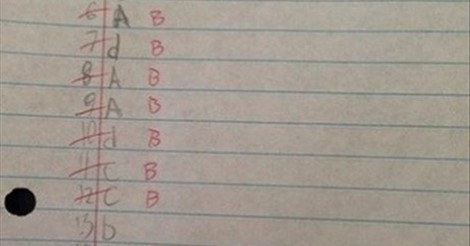 6 A B
7 d B
8 A B
9 A B
10 d B
11 C B
12 C B
13 b